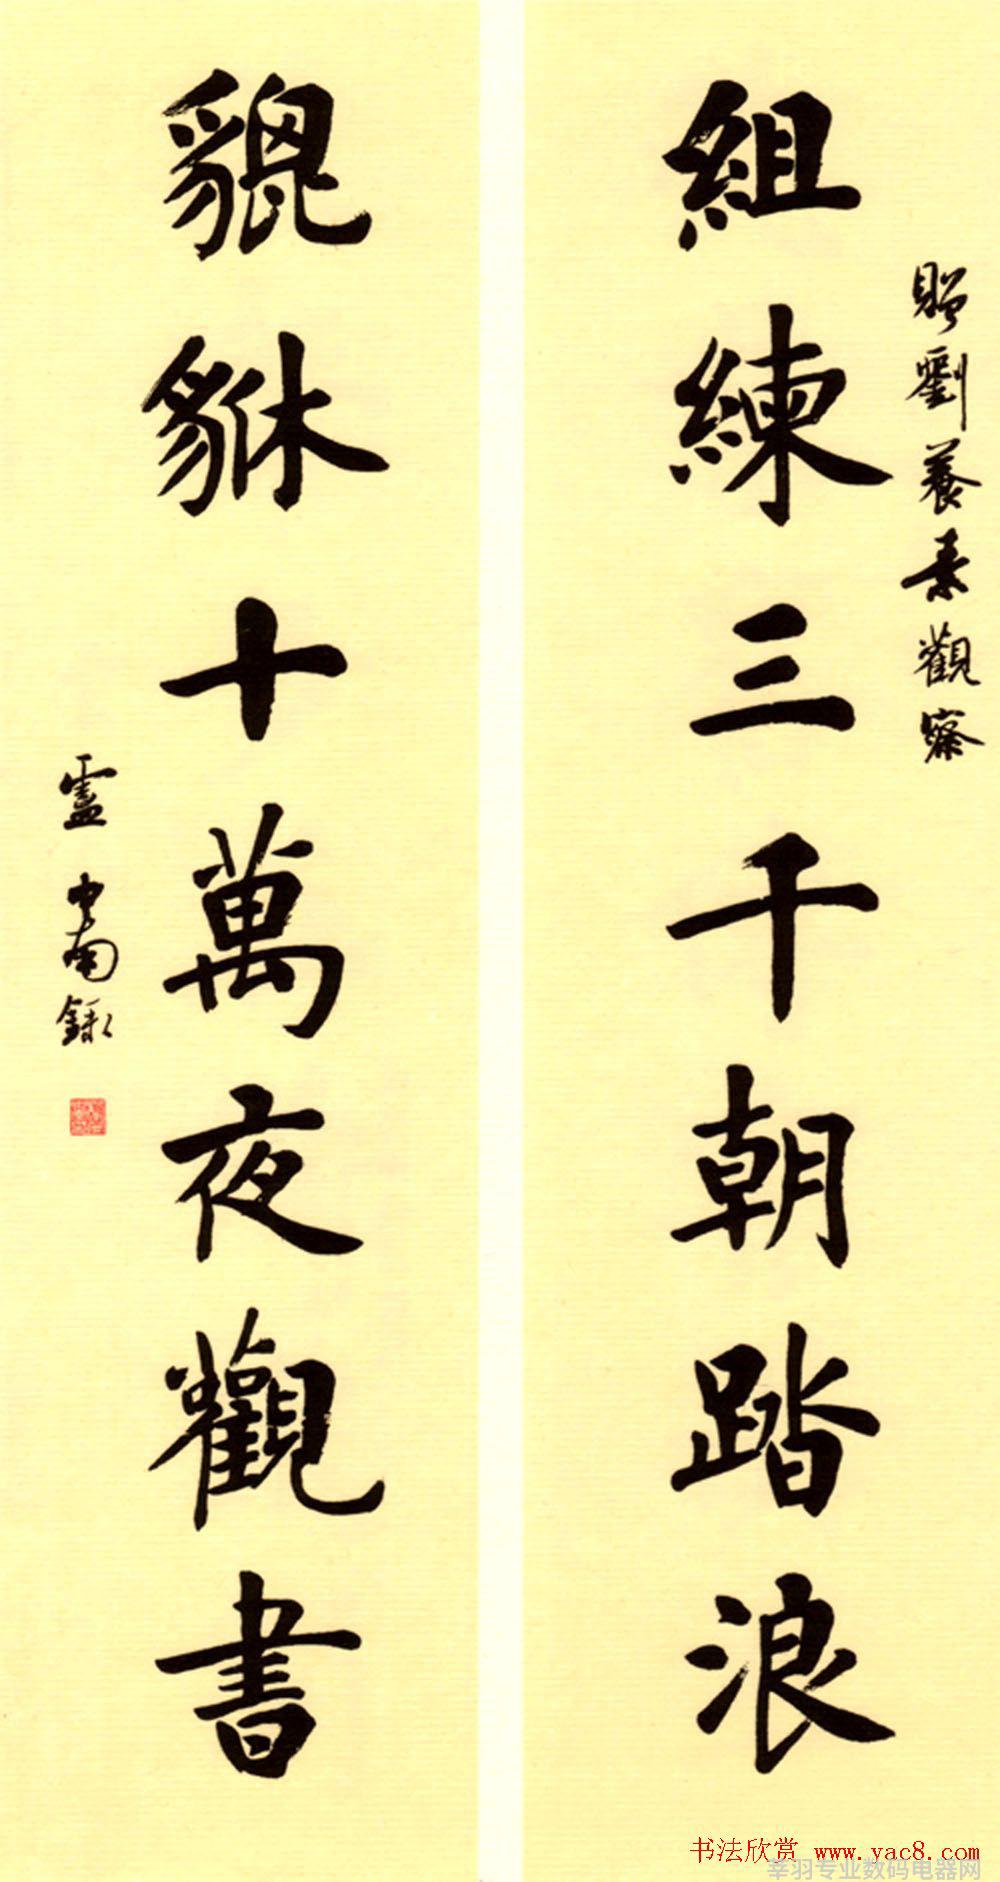 贈劉養素觀察
組練三千朝踏浪
貔貅十萬夜觀書
盧中南錄
书法欣赏 www.yac8.com
羽专业数码电器网